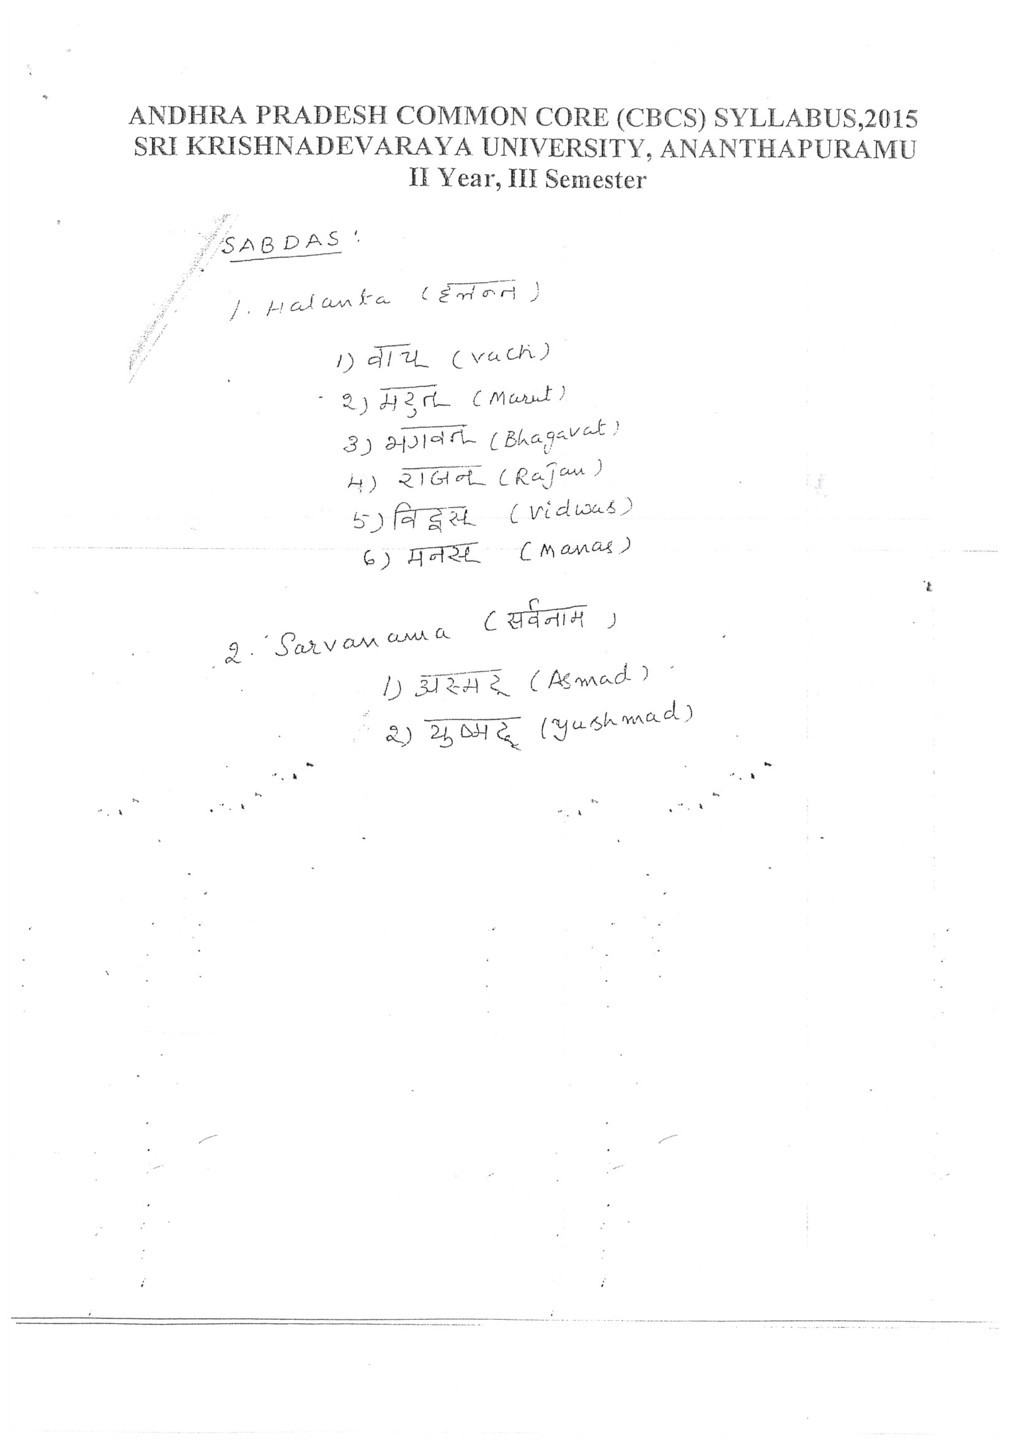 ANDHRA PRADESH COMMON CORE (CBCS) SYLLABUS,2015
SRI KRISHNADEVARAYA UNIVERSITY, ANANTHAPURAMU
II Year, III Semester
SABDAS :
1. Halanta (हलन्त)
1) वाच् (vach)
2) मरुत् (Marut)
3) भगवत् (Bhagavat)
4) राजन् (Rajan)
5) विद्वस् (vidwas)
6) मनस् (Manas)
2. Sarvanama (सर्वनाम)
1) अस्मद् (Asmad)
2) युष्मद् (yushmad)